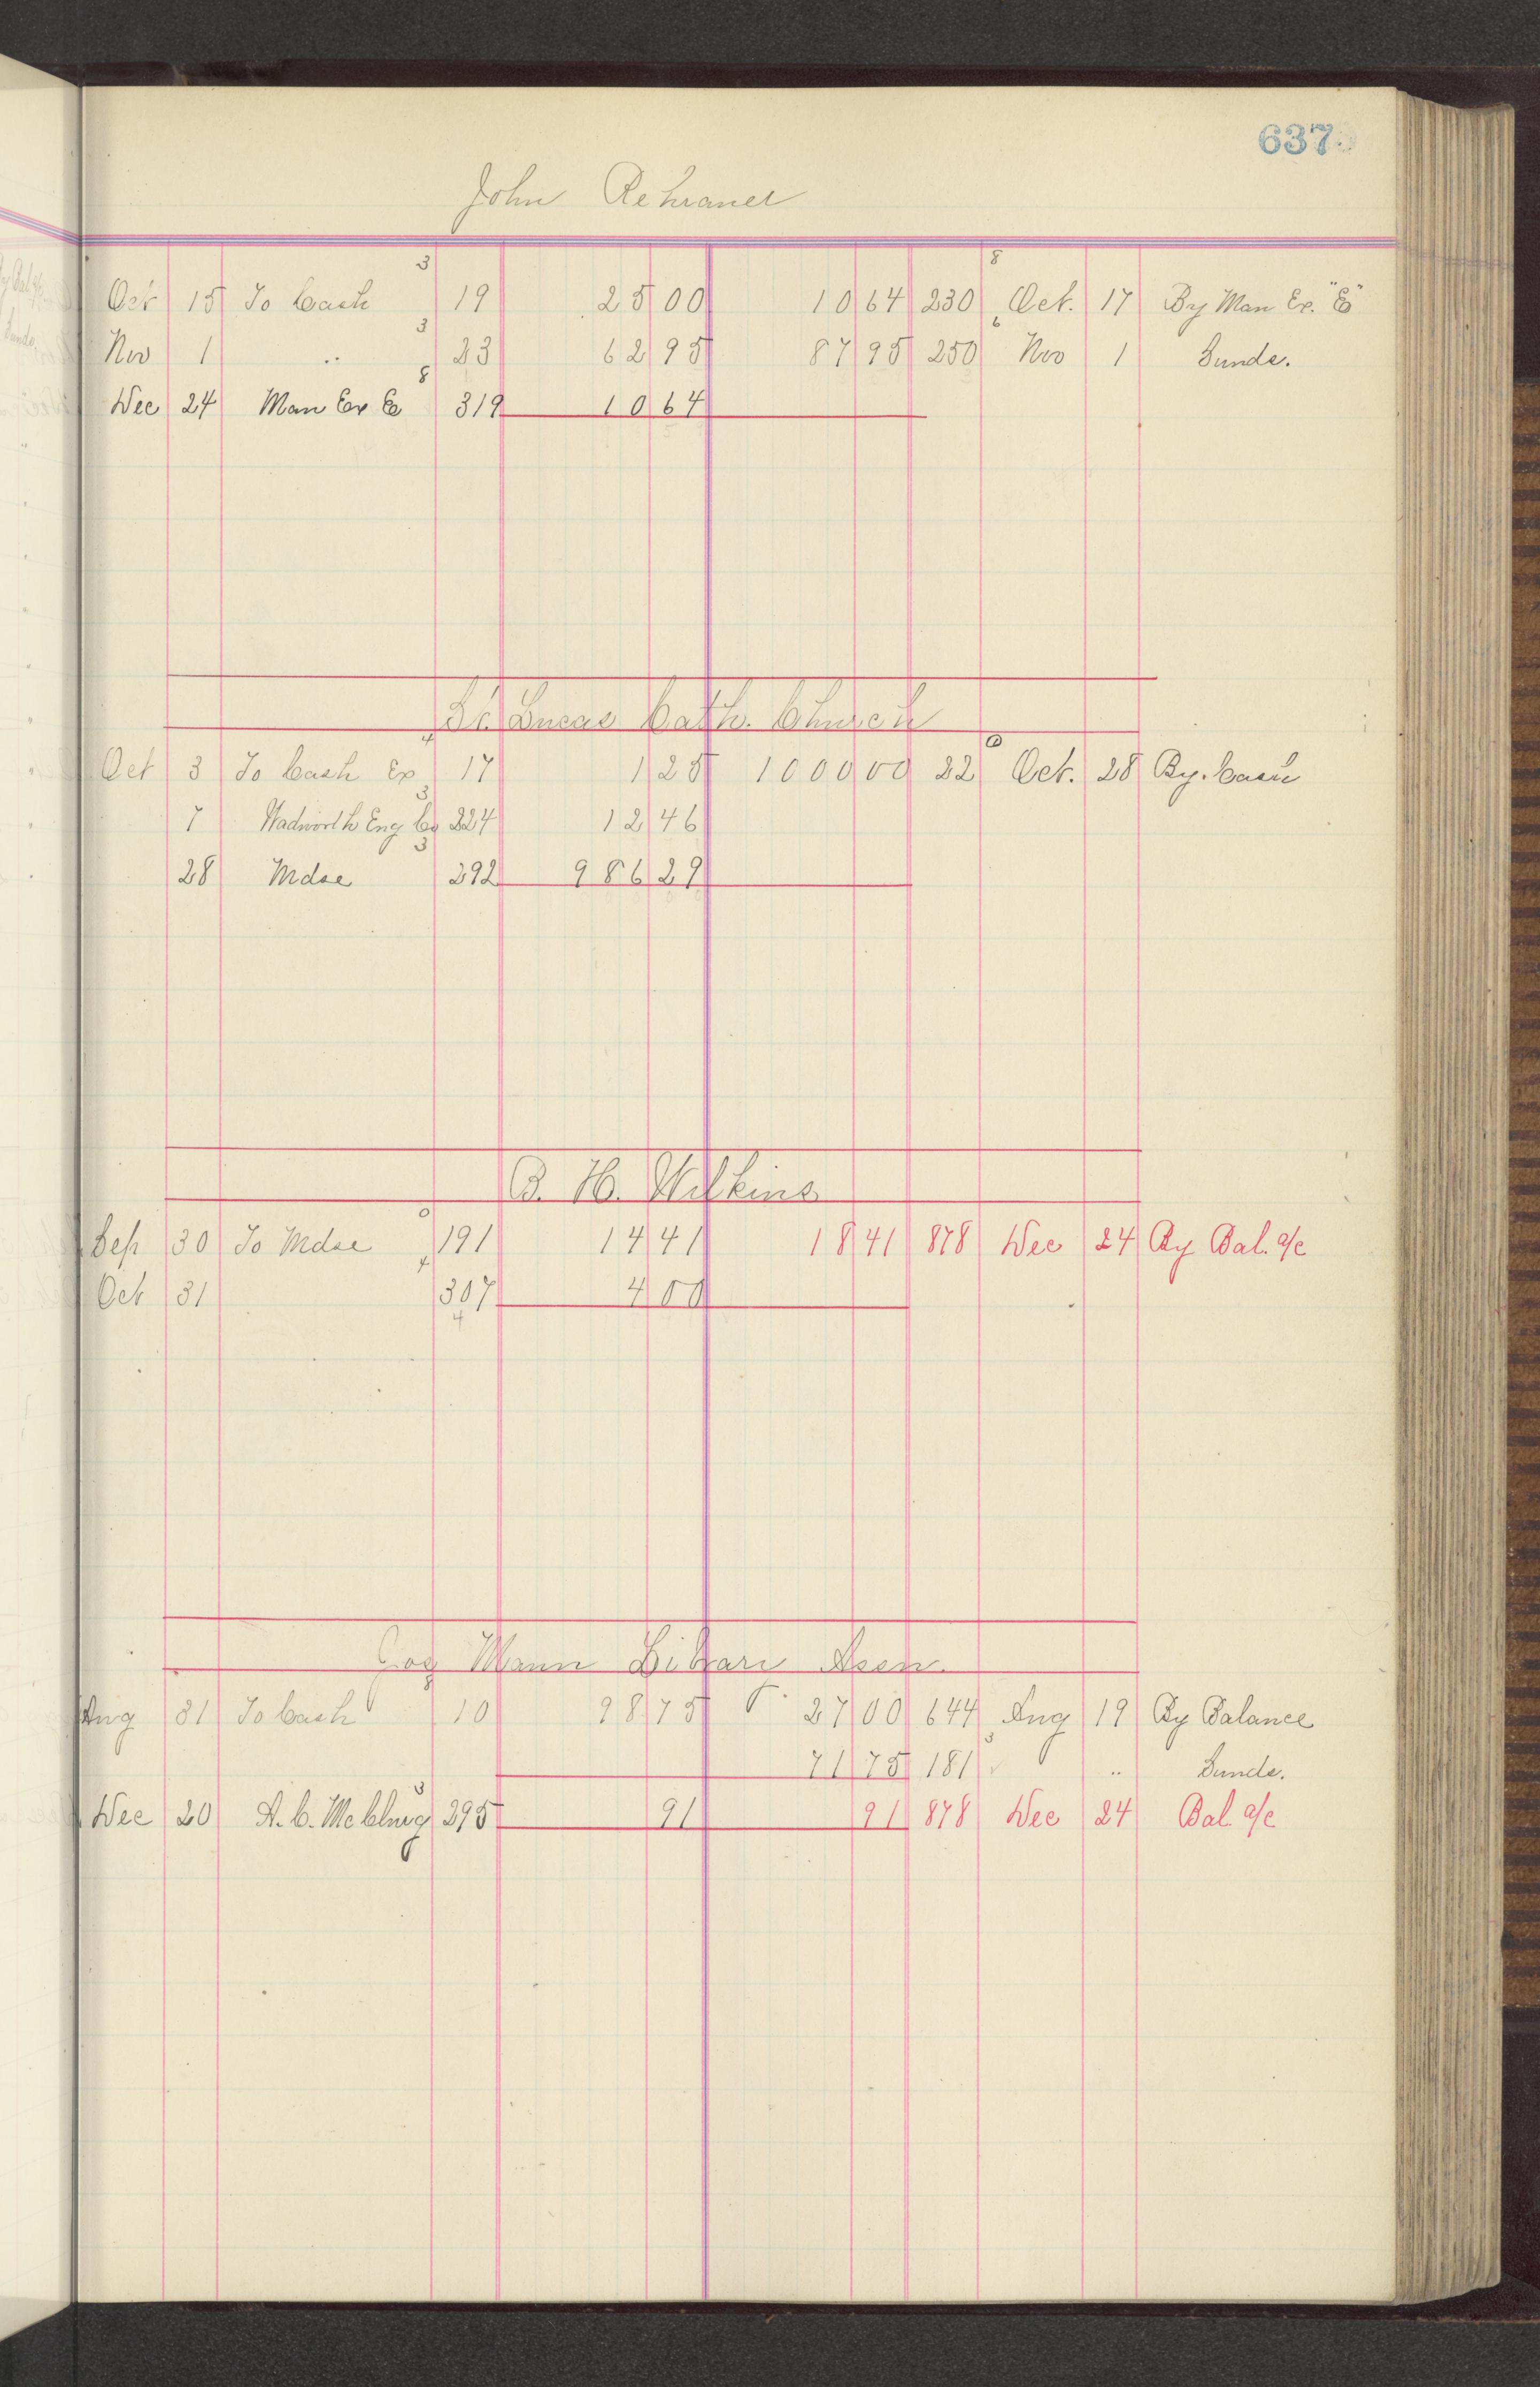 637
John Rehraner
3 8
Oct 15 To Cash 19 25 00 10 64 230 Oct. 17 By Man Ex. "E"
3 6
Nov 1 " 23 62 95 87 95 250 Nov 1 Sunds.
8
Dec 24 Man Ex E 319 10 64
St. Lucas Cath. Church
4 0
Oct 3 To Cash Ex 17 1 25 1000 00 22 Oct. 28 By Cash
3
7 Wadworth Eng Co 224 12 46
3
28 Mdse 292 986 29
B. H. Wilkins
0
Sep 30 To Mdse 191 14 41 18 41 878 Dec 24 By Bal. a/c
4
Oct 31 307 4 00
4
Mann Library Assn.
8
Aug 31 To Cash 10 98 75 27 00 644 Aug 19 By Balance
3
71 75 181 " Sunds.
3
Dec 20 A. C. McClurg 295 91 91 878 Dec 24 Bal. a/c